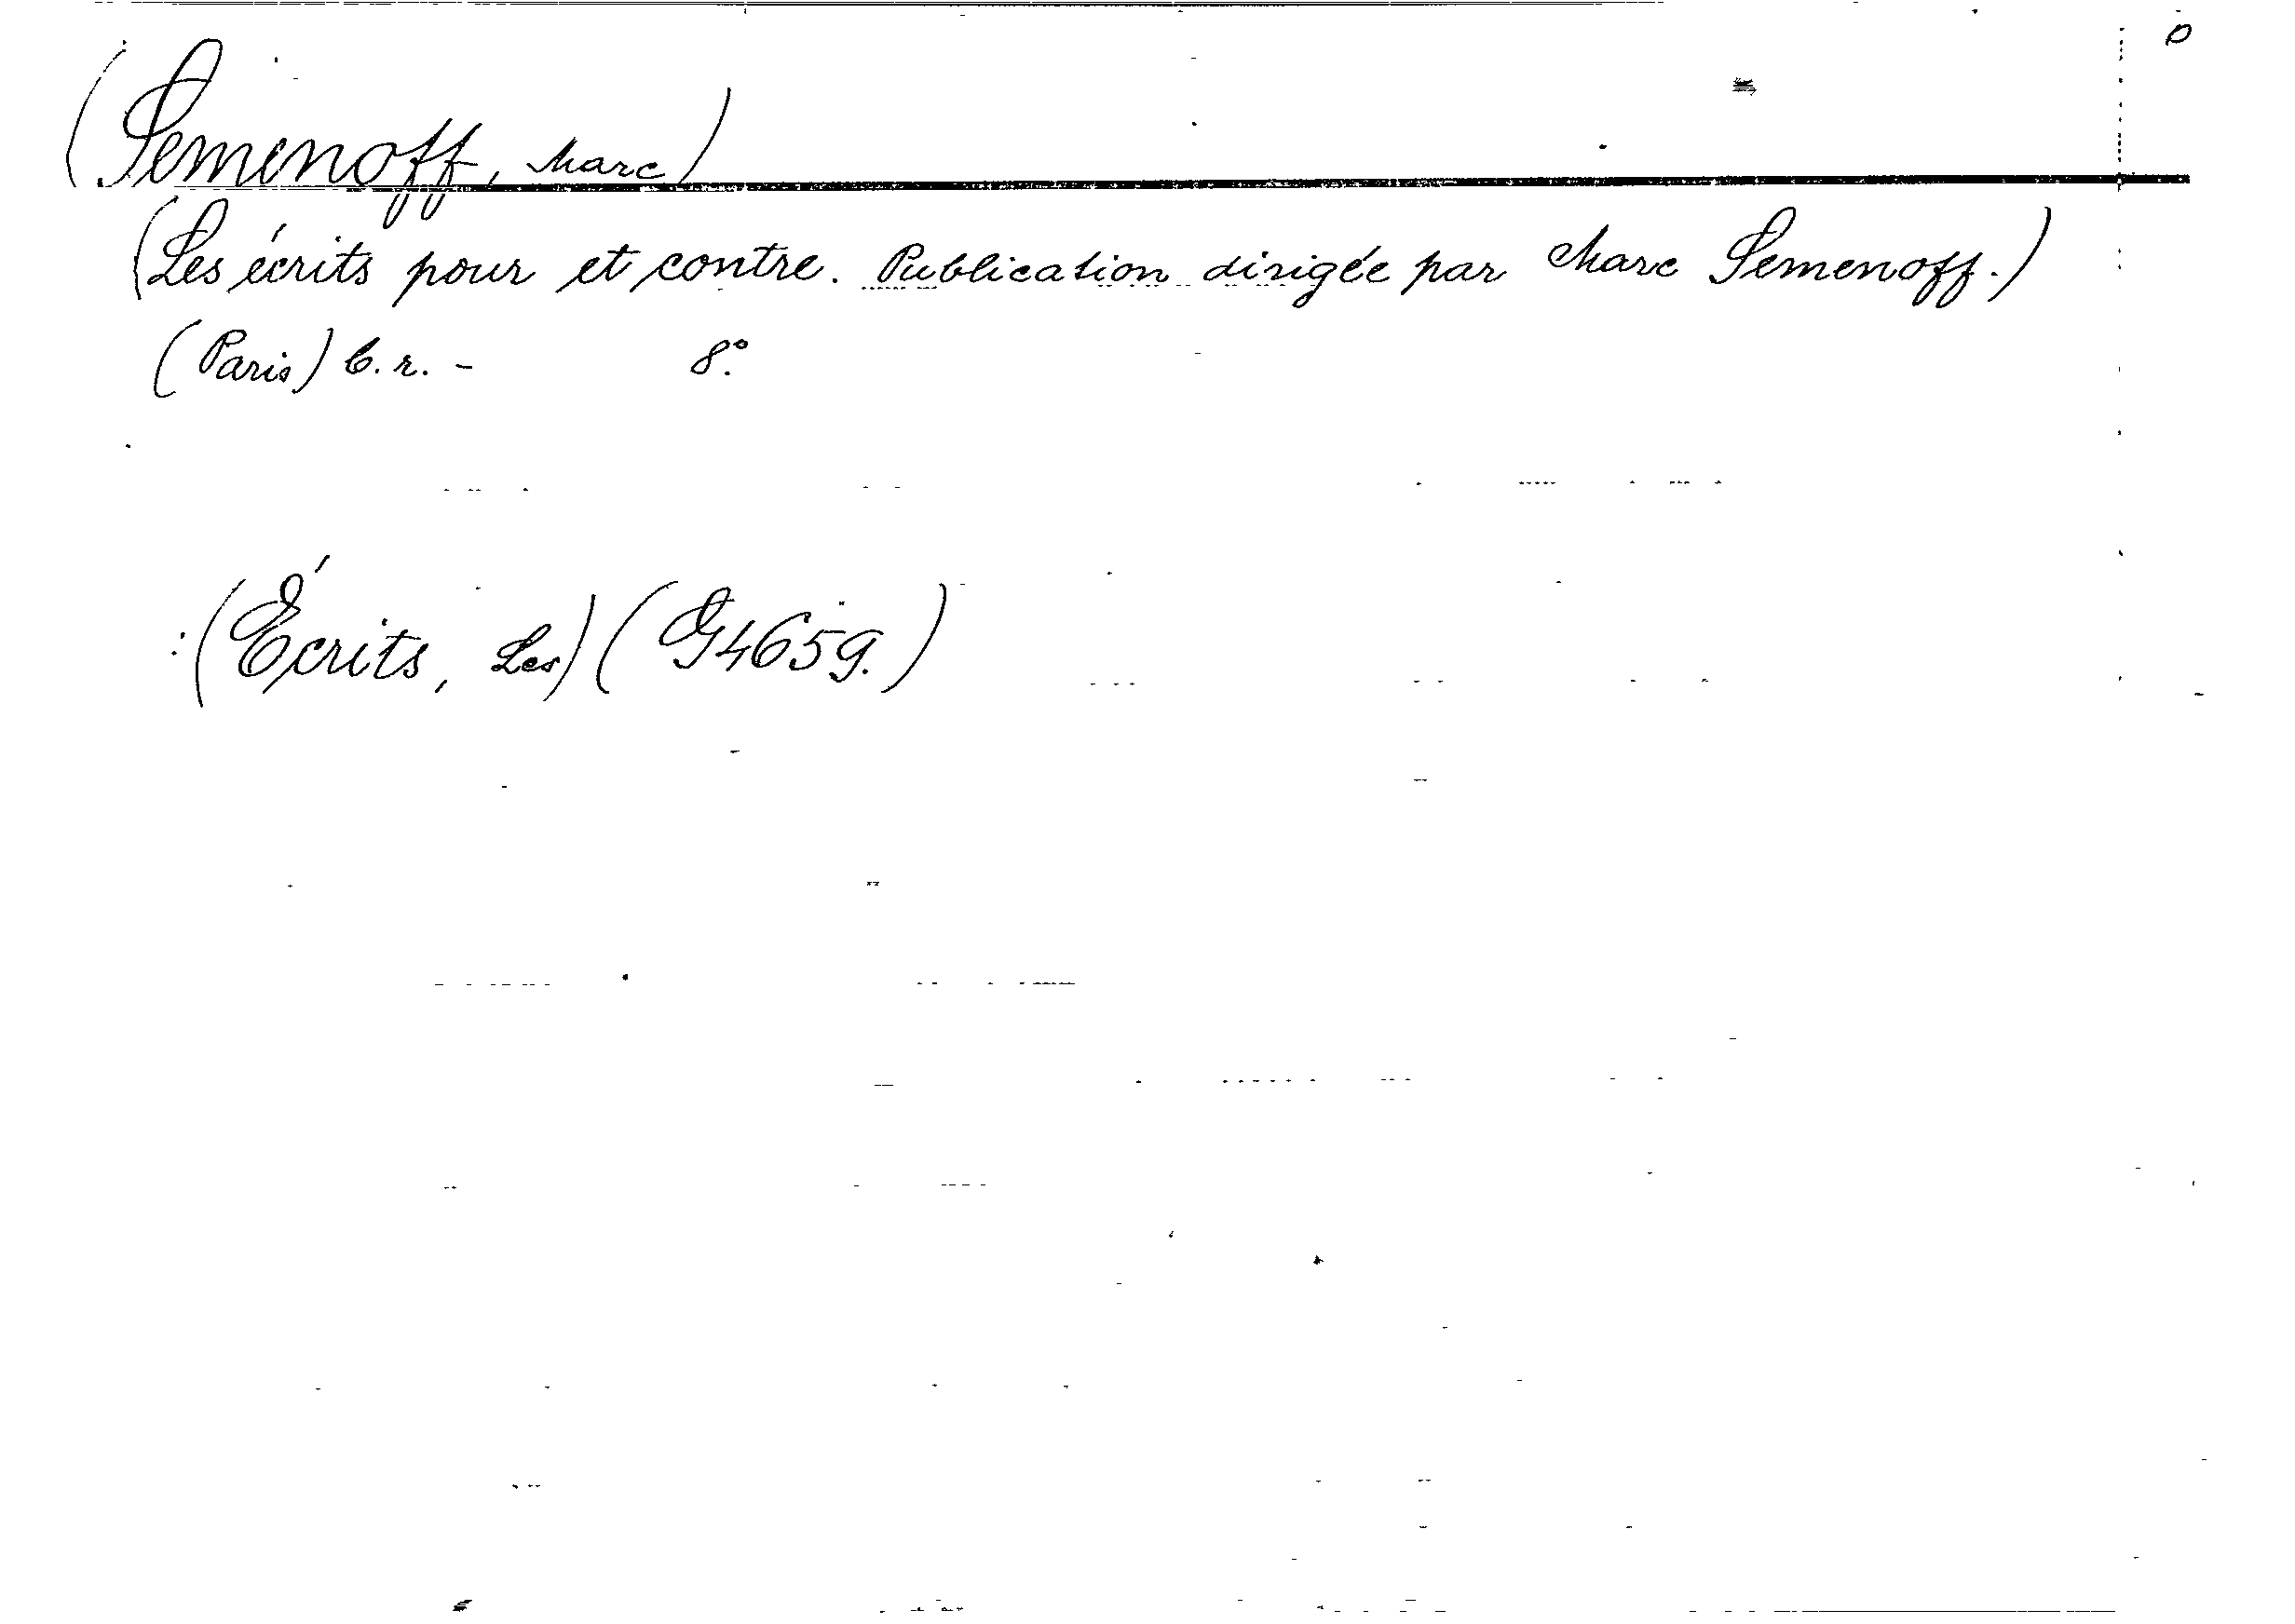 O
(Semenoff, Marc)
(Les écrits pour et contre. Publication dirigée par Marc Semenoff.)
(Paris) b. r. - 8:o
:(Écrits, Les) (G4659.)